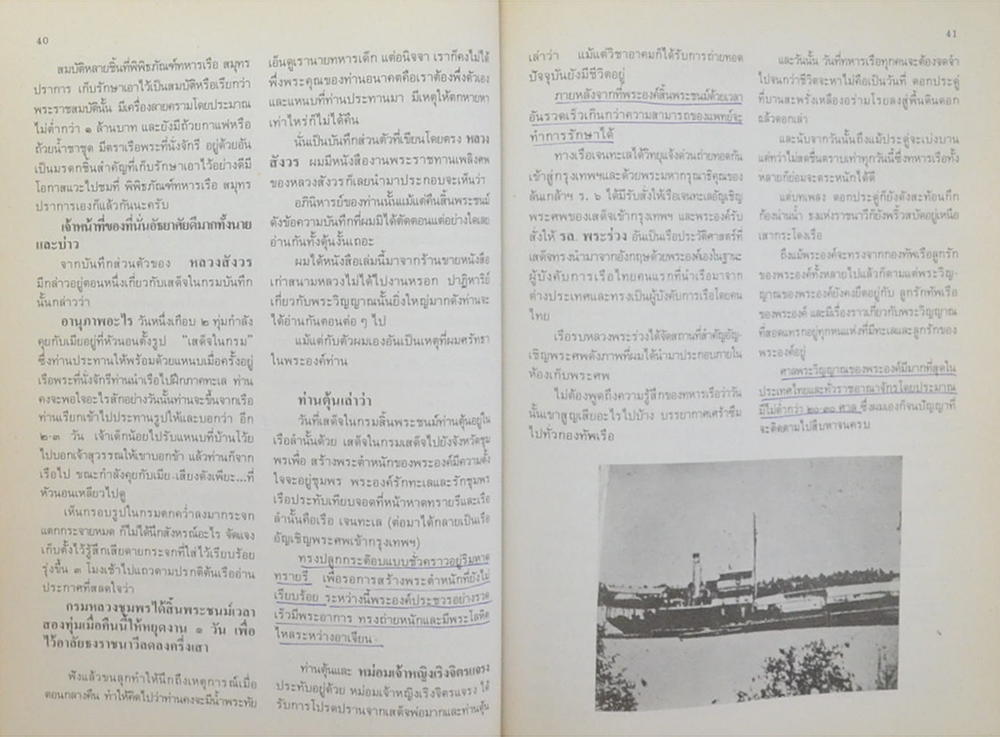 40
สมบัติหลายชิ้นที่พิพิธภัณฑ์ทหารเรือ สมุทร
ปราการ เก็บรักษาเอาไว้เป็นสมบัติหรือเรียกว่า
พระราชสมบัตินั้น มีเครื่องลายครามโดยประมาณ
ไม่ต่ำกว่า ๑ ล้านบาท และยังมีถ้วยกาแฟหรือ
ถ้วยน้ำชาชุด มีตราเรือพระที่นั่งจักรี อยู่ด้วยอัน
เป็นมรดกชิ้นสำคัญที่เก็บรักษาเอาไว้อย่างดีมี
โอกาสแวะไปชมที่ พิพิธภัณฑ์ทหารเรือ สมุทร
ปราการเองก็แล้วกันนะครับ
เจ้าหน้าที่ของที่นั่นอัธยาศัยดีมากทั้งนาย
และบ่าว
จากบันทึกส่วนตัวของ หลวงสังวร
มีกล่าวอยู่ตอนหนึ่งเกี่ยวกับเสด็จในกรมบันทึก
นั้นกล่าวว่า
อานุภาพอะไร วันหนึ่งเกือบ ๒ ทุ่มกำลัง
คุยกับเมียอยู่ที่หัวนอนตั้งรูป "เสด็จในกรม"
ซึ่งท่านประทานให้พร้อมด้วยแหนบเมื่อครั้งอยู่
เรือพระที่นั่งจักรีท่านนำเรือไปฝึกภาคทะเล ท่าน
คงจะพอใจอะไรสักอย่างวันนั้นท่านจะขึ้นจากเรือ
ท่านเรียกเข้าไปประทานรูปให้และบอกว่า อีก
๒-๓ วัน เจ้าเด็กน้อยไปรับแหนบที่บ้านโว้ย
ไปบอกเจ้าสุวรรณให้เขาบอกข้า แล้วท่านก็จาก
เรือไป ขณะกำลังคุยกับเมีย เสียงดังเพียะ...ที่
หัวนอนเหลียวไปดู
เห็นกรอบรูปในกรมตกคว่ำลงมากระจก
แตกกระจายหมด ก็ไม่ได้นึกสังหรณ์อะไร จัดแจง
เก็บตั้งไว้รู้สึกเสียดายกระจกที่ใส่ไว้เรียบร้อย
รุ่งขึ้น ๓ โมงเช้าไปแถวตามปรกติต้นเรืออ่าน
ประกาศที่สลดใจว่า
กรมหลวงชุมพรได้สิ้นพระชนม์เวลา
สองทุ่มเมื่อคืนนี้ให้หยุดงาน ๑ วัน เพื่อ
ไว้อาลัยธงราชนาวีลดลงครึ่งเสา
ฟังแล้วขนลุกทำให้นึกถึงเหตุการณ์เมื่อ
ตอนกลางคืน ทำให้คิดไปว่าท่านคงจะมีน้ำพระทัย
เอ็นดูเรานายทหารเด็ก แต่อนิจจา เราก็คงไม่ได้
พึ่งพระคุณของท่านอนาคตคือเราต้องพึ่งตัวเอง
และแหนบที่ท่านประทานมา มีเหตุให้ตกหายหา
เท่าไหร่ก็ไม่ได้คืน
นั่นเป็นบันทึกส่วนตัวที่เขียนโดยตรง หลวง
สังวร ผมมีหนังสืองานพระราชทานเพลิงศพ
ของหลวงสังวรก็เลยนำมาประกอบจะเห็นว่า
อภินิหารย์ของท่านนั้นแม้แต่คืนสิ้นพระชนม์
ดังข้อความบันทึกที่ผมมิได้ตัดตอนแต่อย่างใดเลย
อ่านกันทั้งดุ้นงั้นเถอะ
ผมได้หนังสือเล่มนี้มาจากร้านขายหนังสือ
เก่าสนามหลวงไม่ได้ไปงานหรอก ปาฏิหาริย์
เกี่ยวกับพระวิญญาณนั้นยิ่งใหญ่มากดังท่านจะ
ได้อ่านกันตอนต่อ ๆ ไป
แม้แต่กับตัวผมเองอันเป็นเหตุที่ผมศรัทธา
ในพระองค์ท่าน
ท่านตุ้นเล่าว่า
วันที่เสด็จในกรมสิ้นพระชนม์ท่านตุ้นอยู่ใน
เรือลำนั้นด้วย เสด็จในกรมเสด็จไปยังจังหวัดชุม
พรเพื่อ สร้างพระตำหนักของพระองค์มีความตั้ง
ใจจะอยู่ชุมพร พระองค์รักทะเลและรักชุมพร
เรือประทับเทียบจอดที่หน้าหาดทรายรีและเรือ
ลำนั้นคือเรือ เจนทะเล (ต่อมาได้กลายเป็นเรือ
อัญเชิญพระศพเข้ากรุงเทพฯ)
ทรงปลูกกระต๊อบแบบชั่วคราวอยู่ริมหาด
ทรายรี เพื่อรอการสร้างพระตำหนักที่ยังไม่
เรียบร้อย ระหว่างนี้พระองค์ประชวรอย่างรวด
เร็วมีพระอาการ ทรงถ่ายหนักและมีพระโลหิต
ไหลระหว่างอาเจียน
ท่านตุ้นและ หม่อมเจ้าหญิงเริงจิตรแจรง
ประทับอยู่ด้วย หม่อมเจ้าหญิงเริงจิตรแจรง ได้
รับการโปรดปรานจากเสด็จพ่อมากและท่านตุ้น
41
เล่าว่า แม้แต่วิชาอาคมก็ได้รับการถ่ายทอด
ปัจจุบันยังมีชีวิตอยู่
ภายหลังจากที่พระองค์สิ้นพระชนม์ด้วยเวลา
อันรวดเร็วเกินกว่าความสามารถของแพทย์จะ
ทำการรักษาได้
ทางเรือเจนทะเลได้วิทยุแจ้งด่วนถ่ายทอดกัน
เข้าสู่กรุงเทพฯและด้วยพระมหากรุณาธิคุณของ
ล้นเกล้าฯ ร. ๖ ได้มีรับสั่งให้เรือเจนทะเลอัญเชิญ
พระศพของเสด็จเข้ากรุงเทพฯ และพระองค์รับ
สั่งให้ รล. พระร่วง อันเป็นเรือประวัติศาสตร์ที่
เสด็จทรงนำมาจากอังกฤษด้วยพระองค์เองในฐานะ
ผู้บังคับการเรือไทยคนแรกที่นำเรือมาจาก
ต่างประเทศและทรงเป็นผู้บังคับการเรือโดยคน
ไทย
เรือรบหลวงพระร่วงได้จัดสถานที่สำคัญอัญ-
เชิญพระศพดังภาพที่ผมได้นำมาประกอบภายใน
ห้องเก็บพระศพ
ไม่ต้องพูดถึงความรู้สึกของทหารเรือว่าวัน
นั้นเขาสูญเสียอะไรไปบ้าง บรรยากาศเศร้าซึม
ไปทั่วกองทัพเรือ
และวันนั้น วันที่ทหารเรือทุกคนจะต้องจดจำ
ไปจนกว่าชีวิตจะหาไม่คือเป็นวันที่ ดอกประดู่
ที่บานสะพรั่งเหลืองอร่ามโรยลงสู่พื้นดินดอก
แล้วดอกเล่า
และนับจากวันนั้นถึงแม้ประดู่จะเบ่งบาน
แต่ทว่าไม่สดชื่นตราบเท่าทุกวันนี้ซึ่งทหารเรือทั้ง
หลายก็ย่อมจะตระหนักได้ดี
แต่บทเพลง ดอกประดู่ก็ยังดังสะท้อนกึก
ก้องน่านน้ำ ธงแห่งราชนาวีก็ยังพริ้วสบัดอยู่เหนือ
เสากระโดงเรือ
ถึงแม้พระองค์จะทรงจากกองทัพเรือลูกรัก
ของพระองค์ทั้งหลายไปแล้วก็ตามแต่พระวิญ-
ญาณของพระองค์ยังคงยืดอยู่กับ ลูกรักทัพเรือ
ของพระองค์ และมีเรื่องราวเกี่ยวกับพระวิญญาณ
ที่สอดแทรกอยู่ทุกหนแห่งที่มีทะเลและลูกรักของ
พระองค์อยู่
ศาลพระวิญญาณของพระองค์มีมากที่สุดใน
ประเทศไทยและทั่วราชอาณาจักรโดยประมาณ
มีไม่ต่ำกว่า ๒๐-๓๐ ศาล ซึ่งผมเองก็จนปัญญาที่
จะติดตามไปสืบหาจนครบ